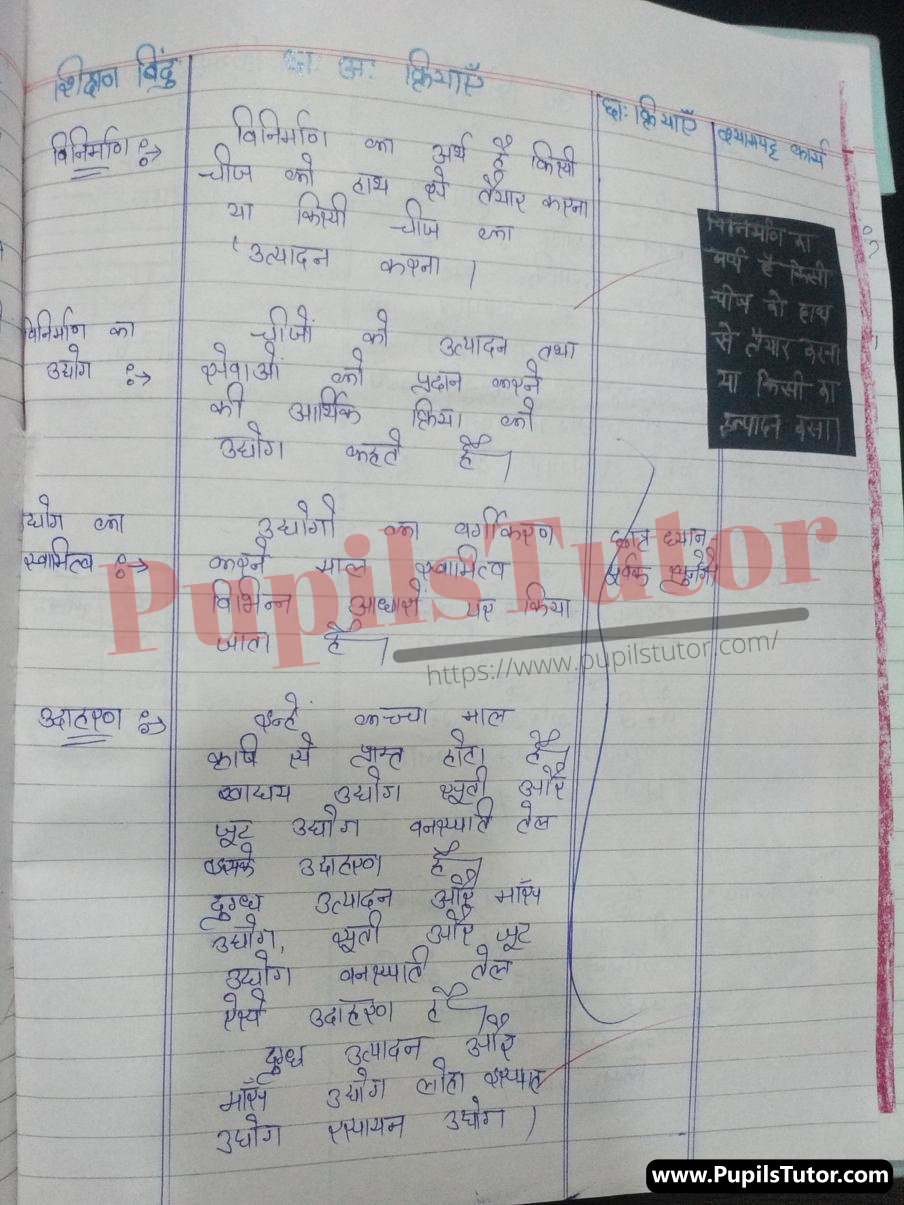 शिक्षण बिंदु
छा: अ: क्रियाएँ
छा: क्रियाएँ
श्यामपट्ट कार्य
विनिर्माण :→
विनिर्माण का अर्थ है किसी
चीज को हाथ से तैयार करना
या किसी चीज का
उत्पादन करना।
विनिर्माण का
अर्थ है किसी
चीज को हाथ
से तैयार करना
या किसी का
उत्पादन
विनिर्माण का
उद्योग :→
चीजों को उत्पादन तथा
सेवाओं को प्रदान करने
की आर्थिक क्रिया को
उद्योग कहते हैं।
उद्योग का
स्वामित्व :→
उद्योगों का वर्गीकरण
करने माल स्वामित्व
विभिन्न आधारों पर किया
जाता है।
छात्र ध्यान
पूर्वक सुनेंगे
उदाहरण :→
इन्हें कच्चा माल
कृषि से प्राप्त होता है।
खाद्यय उद्योग सूती और
जूट उद्योग वनस्पति तेल
इसके उदाहरण हैं।
दुग्ध उत्पादन और माँस
उद्योग, सूती और जूट
उद्योग वनस्पति तेल
ऐसे उदाहरण हैं।
दुग्ध उत्पादन और
माँस उद्योग लोहा इस्पात
उद्योग रसायन उद्योग।
PupilsTutor
https://www.pupilstutor.com/
www.PupilsTutor.com